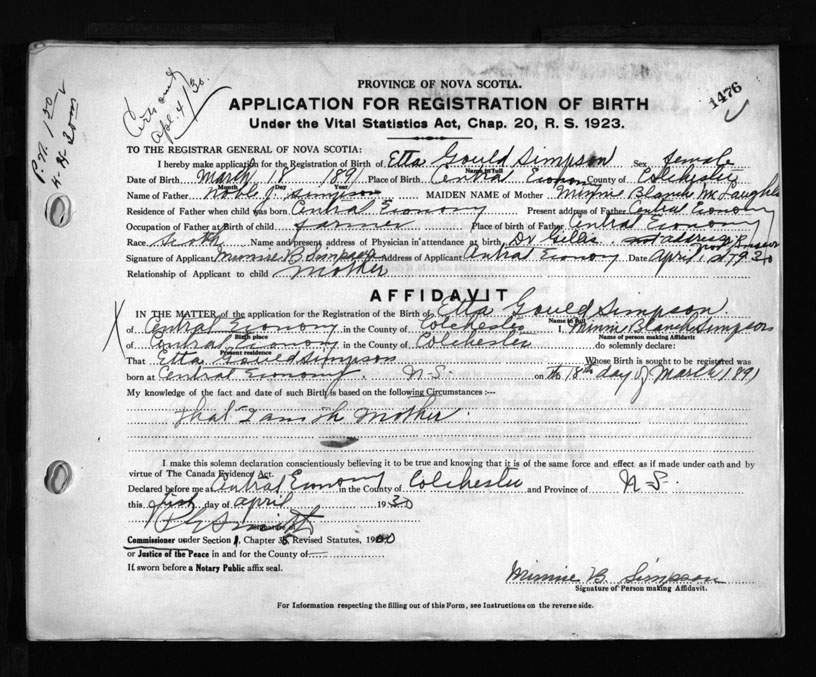 1476
P.N. 150
PROVINCE OF NOVA SCOTIA.
APPLICATION FOR REGISTRATION OF BIRTH
Under the Vital Statistics Act, Chap. 20, R. S. 1923.
TO THE REGISTRAR GENERAL OF NOVA SCOTIA:
I hereby make application for the Registration of Birth of Etta Gould Simpson Sex female
Name in full
Date of Birth March 18 1891 Place of Birth Central Economy County of Colchester
Month Day Year
Name of Father Noble G. Simpson MAIDEN NAME of Mother Minnie Blanch McLaughlin
Residence of Father when child was born Central Economy Present address of Father Central Economy
Occupation of Father at Birth of child farmer Place of birth of Father Central Economy
Race Scotch Name and present address of Physician in attendance at birth Dr Gillis address
Signature of Applicant Minnie B Simpson Address of Applicant Central Economy Date April 1 1930
Relationship of Applicant to child Mother
AFFIDAVIT
IN THE MATTER of the application for the Registration of the Birth of Etta Gould Simpson
Name in full
of Central Economy in the County of Colchester I, Minnie Blanch Simpson
Birth place Name of person making Affidavit
of Central Economy in the County of Colchester do solemnly declare:
Present residence
That Etta Gould Simpson Whose Birth is sought to be registered was
born at Central Economy. N-S- on the 18th day of March 1891
My knowledge of the fact and date of such Birth is based on the following Circumstances :—
that I am the Mother
I make this solemn declaration conscientiously believing it to be true and knowing that it is of the same force and effect as if made under oath and by
virtue of The Canada Evidence Act.
Declared before me at Central Economy in the County of Colchester and Province of N-S-
this first day of April 1930
Commissioner under Section 1, Chapter 35, Revised Statutes, 1900
or Justice of the Peace in and for the County of
If sworn before a Notary Public affix seal.
Minnie B. Simpson
Signature of Person making Affidavit.
For Information respecting the filling out of this Form, see Instructions on the reverse side.